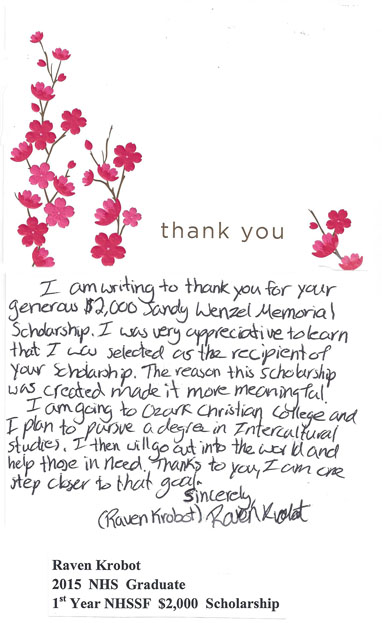 thank you
I am writing to thank you for your
generous $2,000 Sandy Wenzel Memorial
Scholarship. I was very appreciative to learn
that I was selected as the recipient of
your scholarship. The reason this scholarship
was created made it more meaningful.
I am going to Ozark Christian College and
I plan to pursue a degree in Intercultural
studies. I then will go out into the world and
help those in need. Thanks to you, I am one
step closer to that goal.
Sincerely,
(Raven Krobot) Raven Krobot
Raven Krobot
2015 NHS Graduate
1st Year NHSSF $2,000 Scholarship